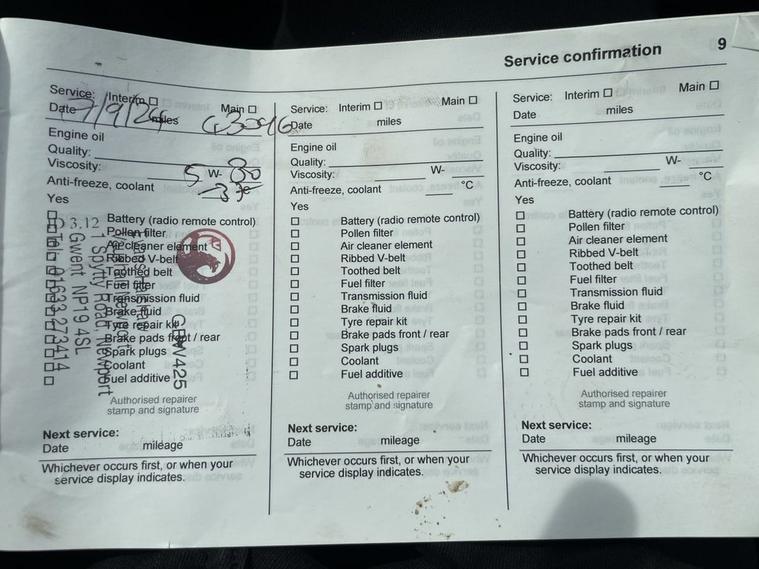 Service confirmation 9
Service: Interim Main
Date 7/9/24 miles 63096
Engine oil
Quality:
Viscosity: 5 W- 30
Anti-freeze, coolant
Yes
Battery (radio remote control)
Pollen filter
Air cleaner element
Ribbed V-belt
Toothed belt
Fuel filter
Transmission fluid
Brake fluid
Tyre repair kit
Brake pads front / rear
Spark plugs
Coolant
Fuel additive
3.12, 1 Spytty Road, Newport
Gwent NP19 4SL
Tel: 01633 273414
Authorised repairer
stamp and signature
Next service:
Date mileage
Whichever occurs first, or when your
service display indicates.
Service: Interim Main
Date miles
Engine oil
Quality:
Viscosity: W-
Anti-freeze, coolant °C
Yes
Battery (radio remote control)
Pollen filter
Air cleaner element
Ribbed V-belt
Toothed belt
Fuel filter
Transmission fluid
Brake fluid
Tyre repair kit
Brake pads front / rear
Spark plugs
Coolant
Fuel additive
Authorised repairer
stamp and signature
Next service:
Date mileage
Whichever occurs first, or when your
service display indicates.
Service: Interim Main
Date miles
Engine oil
Quality:
Viscosity: W-
Anti-freeze, coolant °C
Yes
Battery (radio remote control)
Pollen filter
Air cleaner element
Ribbed V-belt
Toothed belt
Fuel filter
Transmission fluid
Brake fluid
Tyre repair kit
Brake pads front / rear
Spark plugs
Coolant
Fuel additive
Authorised repairer
stamp and signature
Next service:
Date mileage
Whichever occurs first, or when your
service display indicates.